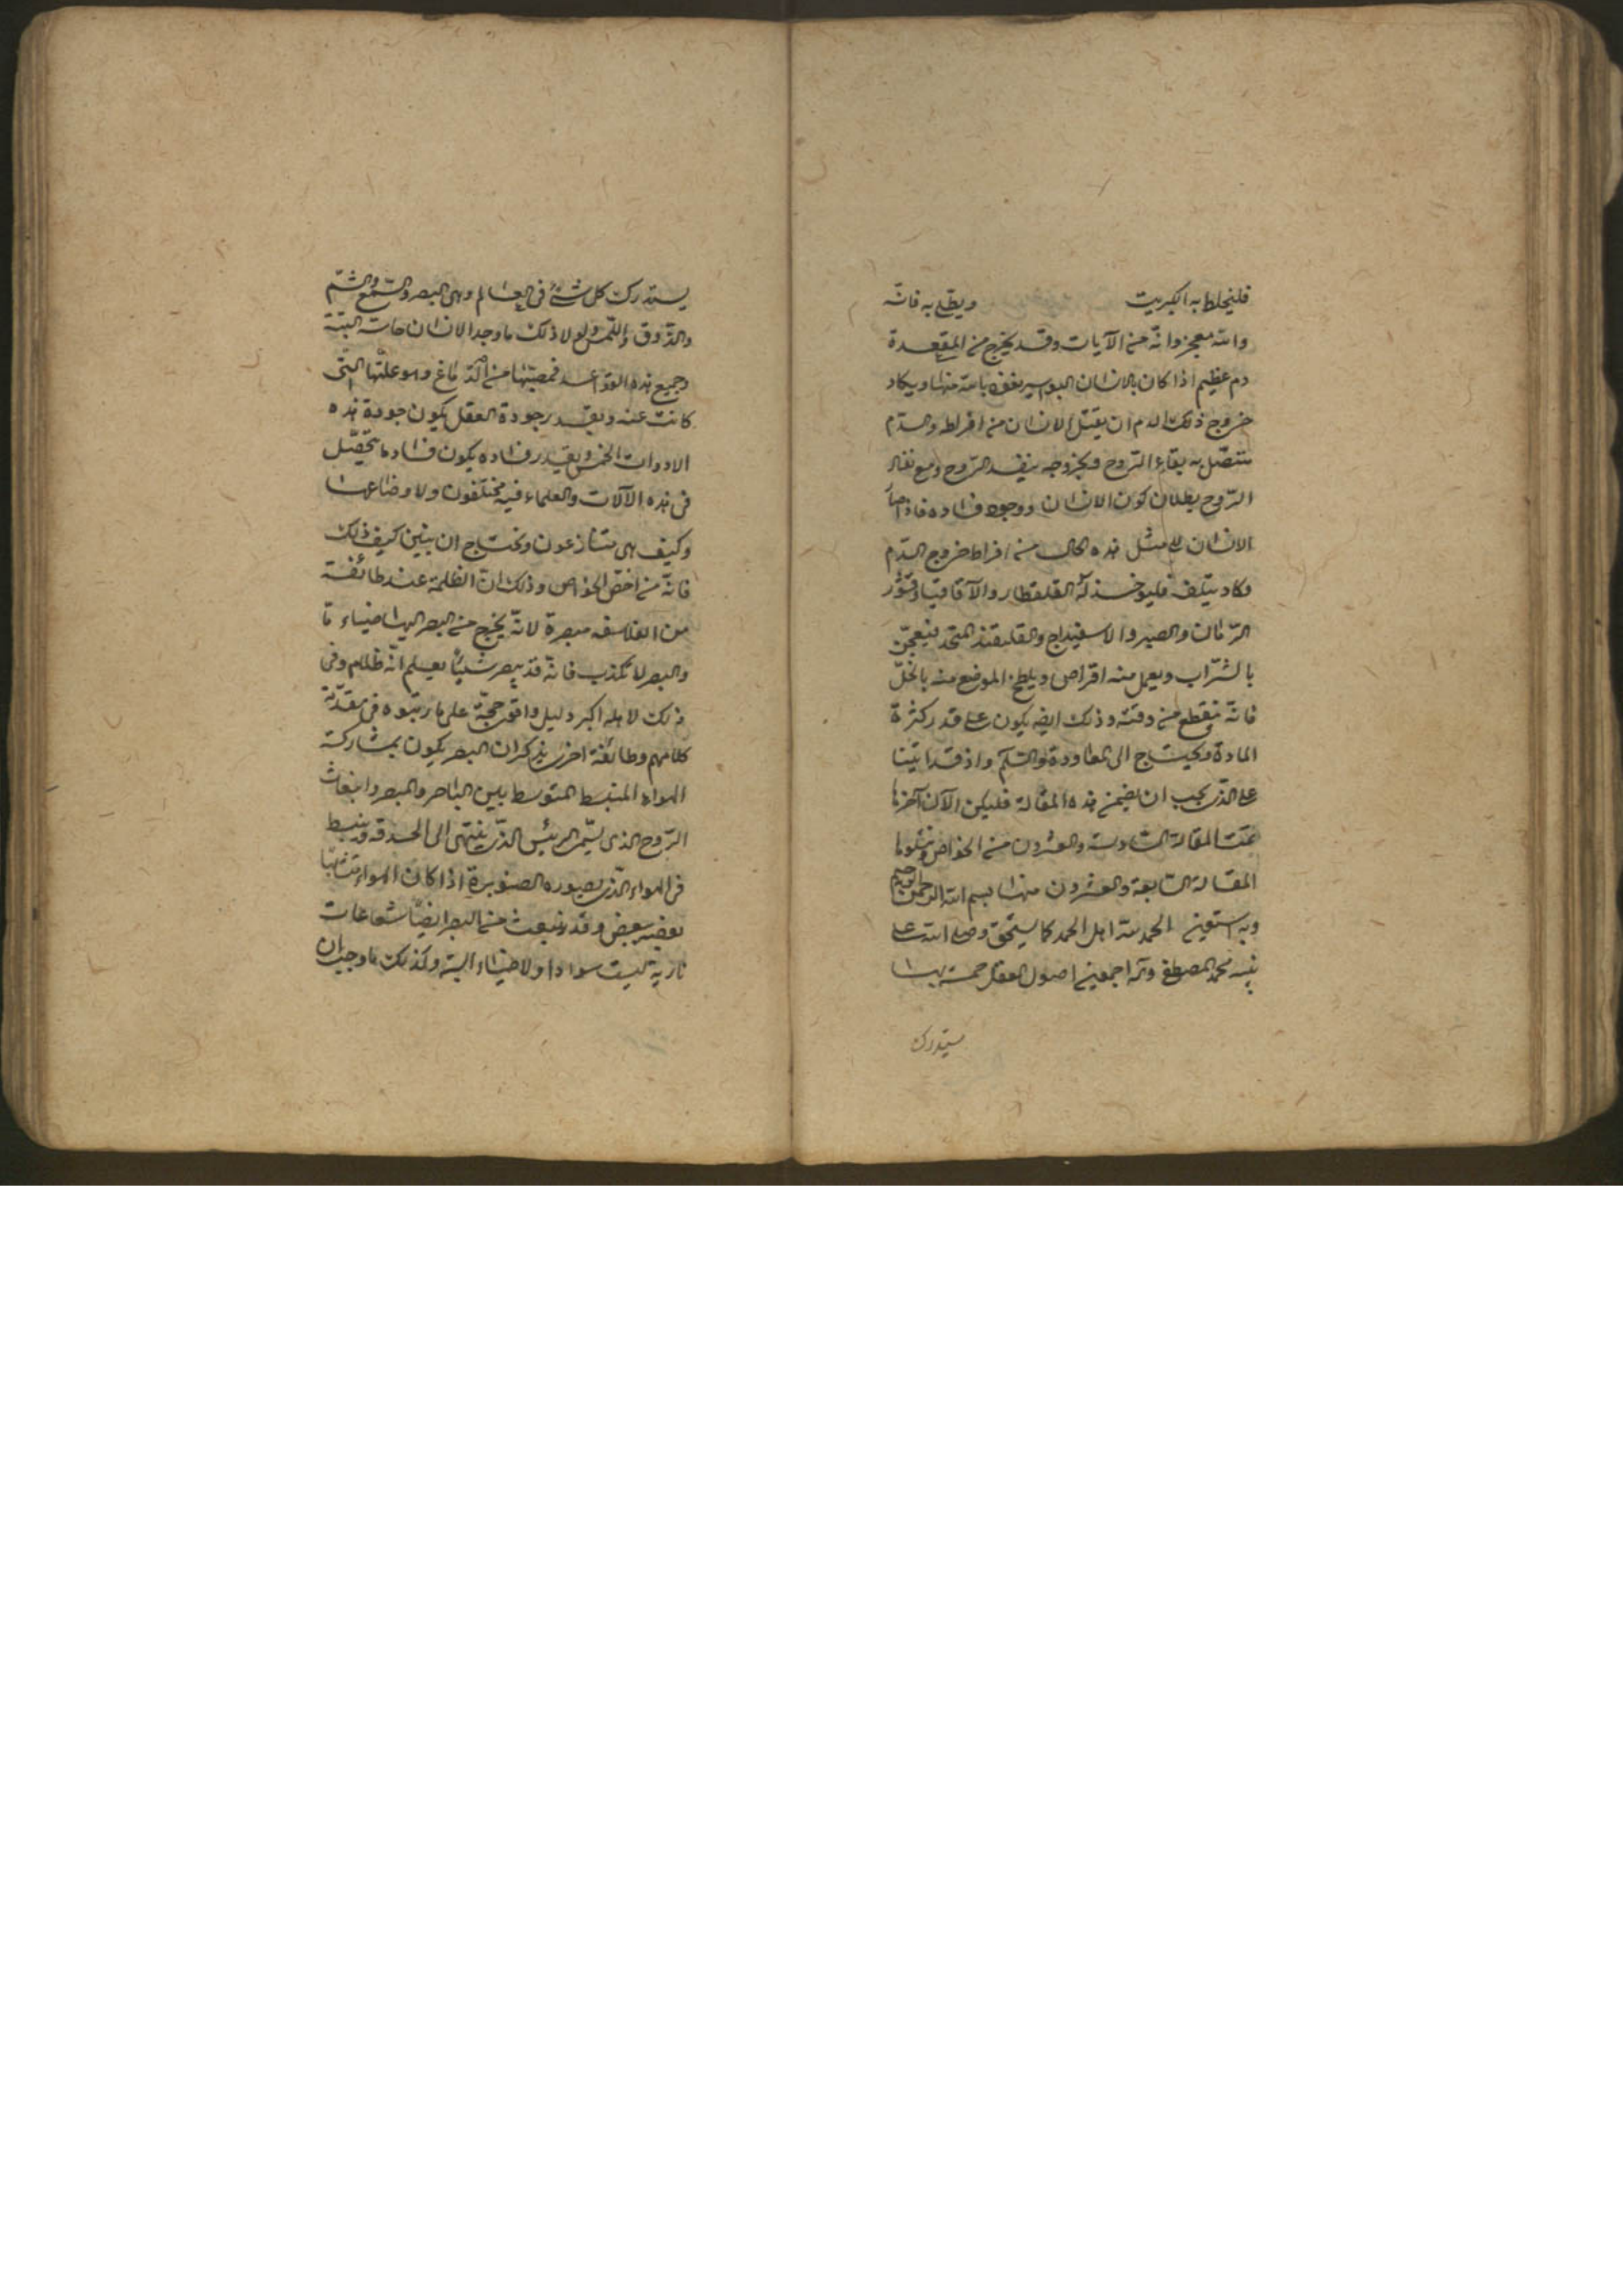 فليخلط به الكبريت ويطلى به فانّه
والله معجز وانّه من الآيات وقد يخرج من المقعدة
دم عظيم اذا كان بالانسان البواسير نعوذ بالله منها ويكاد
خروج ذلك الدم ان يقتل الانسان من افراطه والدّم
متّصل به بقاء الرّوح وبخروجه ينفد الرّوح ومع نفاد
الرّوح بطلان كون الانسان ووجود فساده فاذا صار
الانسان الى مثل هذه الحال من افراط خروج الدّم
وكاد يتلف فليؤخذ له القلقطار والآقاقيا وقشور
الرّمّان والصبر والاسفيداج والقلقند فيعجن
بالشّراب ويعمل منه اقراص ويلطخ الموضع منه بالخلّ
فانّه ينقطع من وقته وذلك ايضا يكون على قدر كثرة
المادة ويحتاج الى المعاودة والسّلم واذ قد اتينا
على الذى يجب ان نضمن هذه المقالة فليكن الآن آخرها
تمّت المقالة السّادسة والعشرون من الخواص ويتلوها
المقالة السّابعة والعشرون منها بسم الله الرحمن الرحيم
وبه استعين الحمد لله اهل الحمد كما يستحق وصلى الله على
نبيه محمد المصطفى وآله اجمعين اصول العقل خمسة بها
يستدرك
يستدرك كل شئ فى العالم وهى البصر والسّمع والشّم
والذّوق واللّمس ولولا ذلك ما وجد الانسان حاسّة البتة
وجميع هذه القواعد فمصبّها من الدّماغ وهو علّتها التى
كانت عنه وبقدر جودة العقل يكون جودة هذه
الادوات الخمس وبقدر فساده يكون فساد ما تحصّل
فى هذه الآلات والعلماء فيه مختلفون ولاوضاعها
وكيف هى متنازعون ونحتاج ان نبيّن كيف ذلك
فانّه من اخصّ الخواص وذلك انّ الظلمة عند طائفة
من الفلاسفه مبصرة لانّه يخرج من البصر اليها ضياء ما
والبصر لا يكذب فانّه قد يبصر شيئا يعلم انّه ظلام وفى
ذلك لاهله اكبر دليل واقوى حجّة على ما رتبوه فى مقدّمة
كلامهم وطائفة اخرى يذكر ان البصر يكون بمشاركة
الهواء المنبسط المتوسط بين النّاظر والمبصر وانبعاث
الرّوح الذى يسمّى الرئيس الذّى ينتهى الى الحدقة وينبسط
فى الهواء الذّى بصوره الصنوبرة اذا كان الهواء متشابها
بعضه ببعض وقد ينبعث من البصر ايضا شعاعات
نارية ليست سوادا ولا ضياء البتة وكذلك ما وجب ان